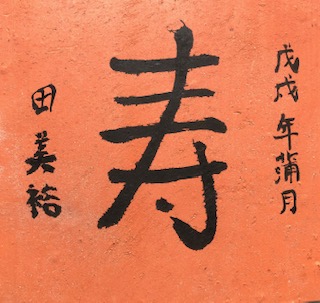 戊戌年蒲月
寿
田美裕